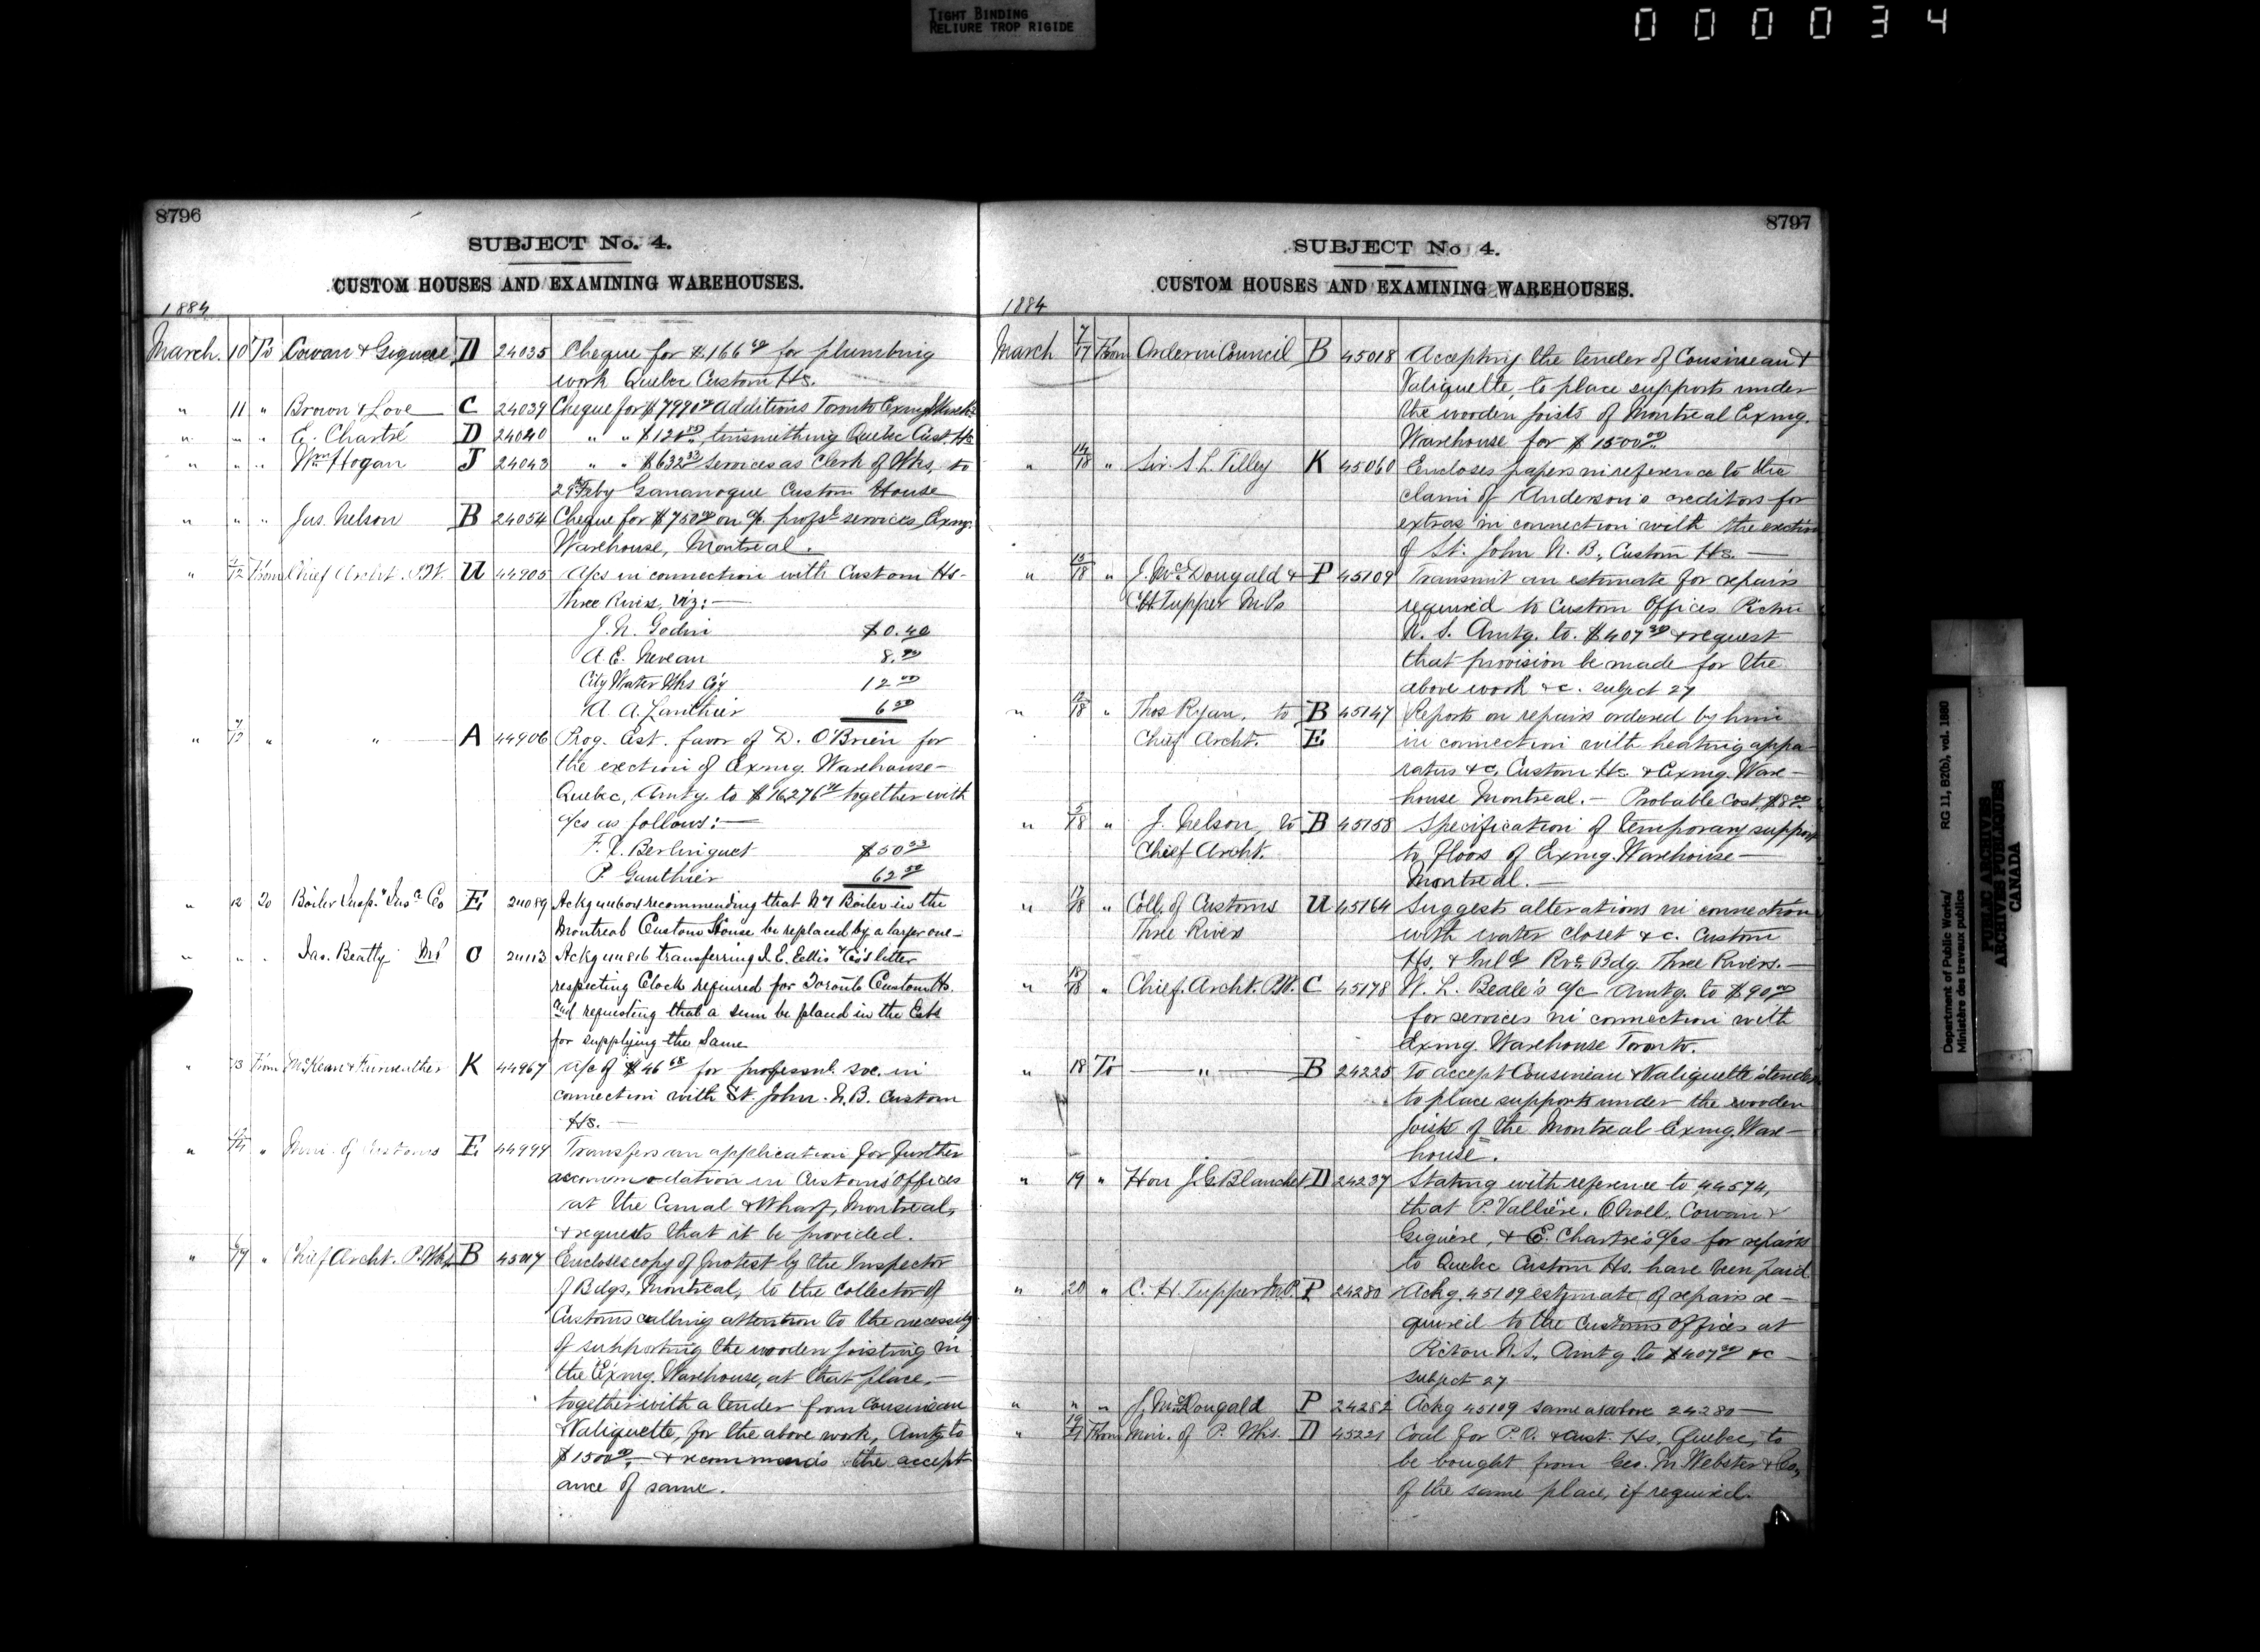 TIGHT BINDING
RELIURE TROP RIGIDE
000034
8796
SUBJECT No. 4.
CUSTOM HOUSES AND EXAMINING WAREHOUSES.
1884
March. 10 To Cowan & Giguere D 24035 Cheque for $166 for plumbing
work Quebec Custom Hs.
" 11 " Brown & Love C 24039 Cheque for $7990 Additions Toronto Exmg
" " " E. Chartré D 24040 " " $128 tinsmithing Quebec Cust. Hs
" " " Wm Hogan J 24043 " " $632 33 services as Clerk of Wks, to
29 Feby Gananoque Custom House
" " " Jas. Nelson B 24054 Cheque for $750 00 on a/c profsl services Exmg.
Warehouse, Montreal.
" 12 From Chief Archt. P.W. U 44905 A/cs in connection with Custom Hs-
Three Rivers, viz:-
J. N. Godin $0.40
A. E. Neveau 8.
City Water Wks Co'y 12 00
A. A. Lanthier 6
" 12 " " A 44906 Prog. Est. favor of D. O'Brien for
the erection of Exmg. Warehouse-
Quebec, Amtg. to $16,276 together with
a/cs as follows:-
F. X. Berlinguet $50
P. Gauthier 62
" 12 To Boiler Insp. & Insce Co E 24089 Ackg recommending that No 1 Boiler in the
Montreal Custom House be replaced by a larger one-
" " " Jas. Beatty MP C 24113 Ackg transferring J. E. Ellis & Co's letter
respecting Clock required for Toronto Custom Hs.
and requesting that a sum be placed in the Ests
for supplying the Same
" 13 From McKean & Fairweather K 44967 a/c of $46 68 for professnl. svc. in
connection with St. John. N.B. Custom
Hs.-
" " Min. of Customs E 44999 Transfers an application for further
accommodation in Customs Offices
at the Canal & Wharf, Montreal,
& requests that it be provided.
" 17 " Chief Archt. P. Wks B 45017 Encloses copy of protest by the Inspector
of Bdgs, Montreal, to the Collector of
Customs calling attention to the necessity
of supporting the wooden joisting in
the Exmg. Warehouse, at that place,-
together with a tender from Cousineau
& Valiquette, for the above work, Amtg to
$1500 00, & recommends the accept
ance of same.
8797
SUBJECT No 4.
CUSTOM HOUSES AND EXAMINING WAREHOUSES.
1884
March 7/17 From Order in Council B 45018 Accepting the tender of Cousineau &
Valiquette, to place supports under
the wooden joists of Montreal Exmg.
Warehouse for $1500 00
" 14/18 " Sir. S. L. Tilley K 45060 Encloses papers in reference to the
claim of Anderson's creditors for
extras in connection with the erection
of St. John N. B., Custom Hs.-
" 15/18 " J. McDougald & P 45109 Transmit an estimate for repairs
C. H. Tupper M.Ps required to Custom Offices Pictou
N. S. Amtg. to. $407 & request
that provision be made for the
above work &c. subject 27
" 12/18 " Thos Ryan, to B 45147 Reports on repairs ordered by him
Chief Archt. E in connection with heating appa-
ratus &c, Custom Hs. & Exmg. Ware-
house Montreal.- Probable Cost $8 00
" 5/18 " J. Nelson, to B 45158 Specification of temporary support
Chief Archt. to floors of Exmg. Warehouse-
Montreal.-
" 17/18 " Coll. of Customs U 45164 Suggests alterations in connection
Three Rivers with water closet &c. Custom
Hs. & Inld Rve. Bdg. Three Rivers.-
" 18/18 " Chief. Archt. P.W. C 45178 W. L. Beale's a/c Amtg. to $90 00
for services in connection with
Exmg. Warehouse Toronto.
" 18 To " B 24225 To accept Cousineau & Valiquette's tender
to place supports under the wooden
joists of the Montreal Exmg. Ware-
house.
" 19 " Hon J. G. Blanchet D 24237 Stating with reference to 44574,
that P. Vallière, O. Noll, Cowan &
Giguère, & E. Chartré's a/cs for repairs
to Quebec Custom Hs. have been paid
" 20 " C. H. Tupper M.P. P 24280 Ackg. 45109 estimate of repairs re-
quired to the Customs Offices at
Pictou N.S., Amtg. to $407 &c-
subject 27
" " " J. McDougald P 24282 Ackg 45109 same as above 24280-
" 19/21 From Min. of P. Wks. D 45221 Coal for P.O. & Cust. Hs, Quebec, to
be bought from Geo. M. Webster & Co,
of the same place, if required.
Department of Public Works/
Ministère des travaux publics
RG 11, B2(b), vol. 1880
PUBLIC ARCHIVES
ARCHIVES PUBLIQUES
CANADA